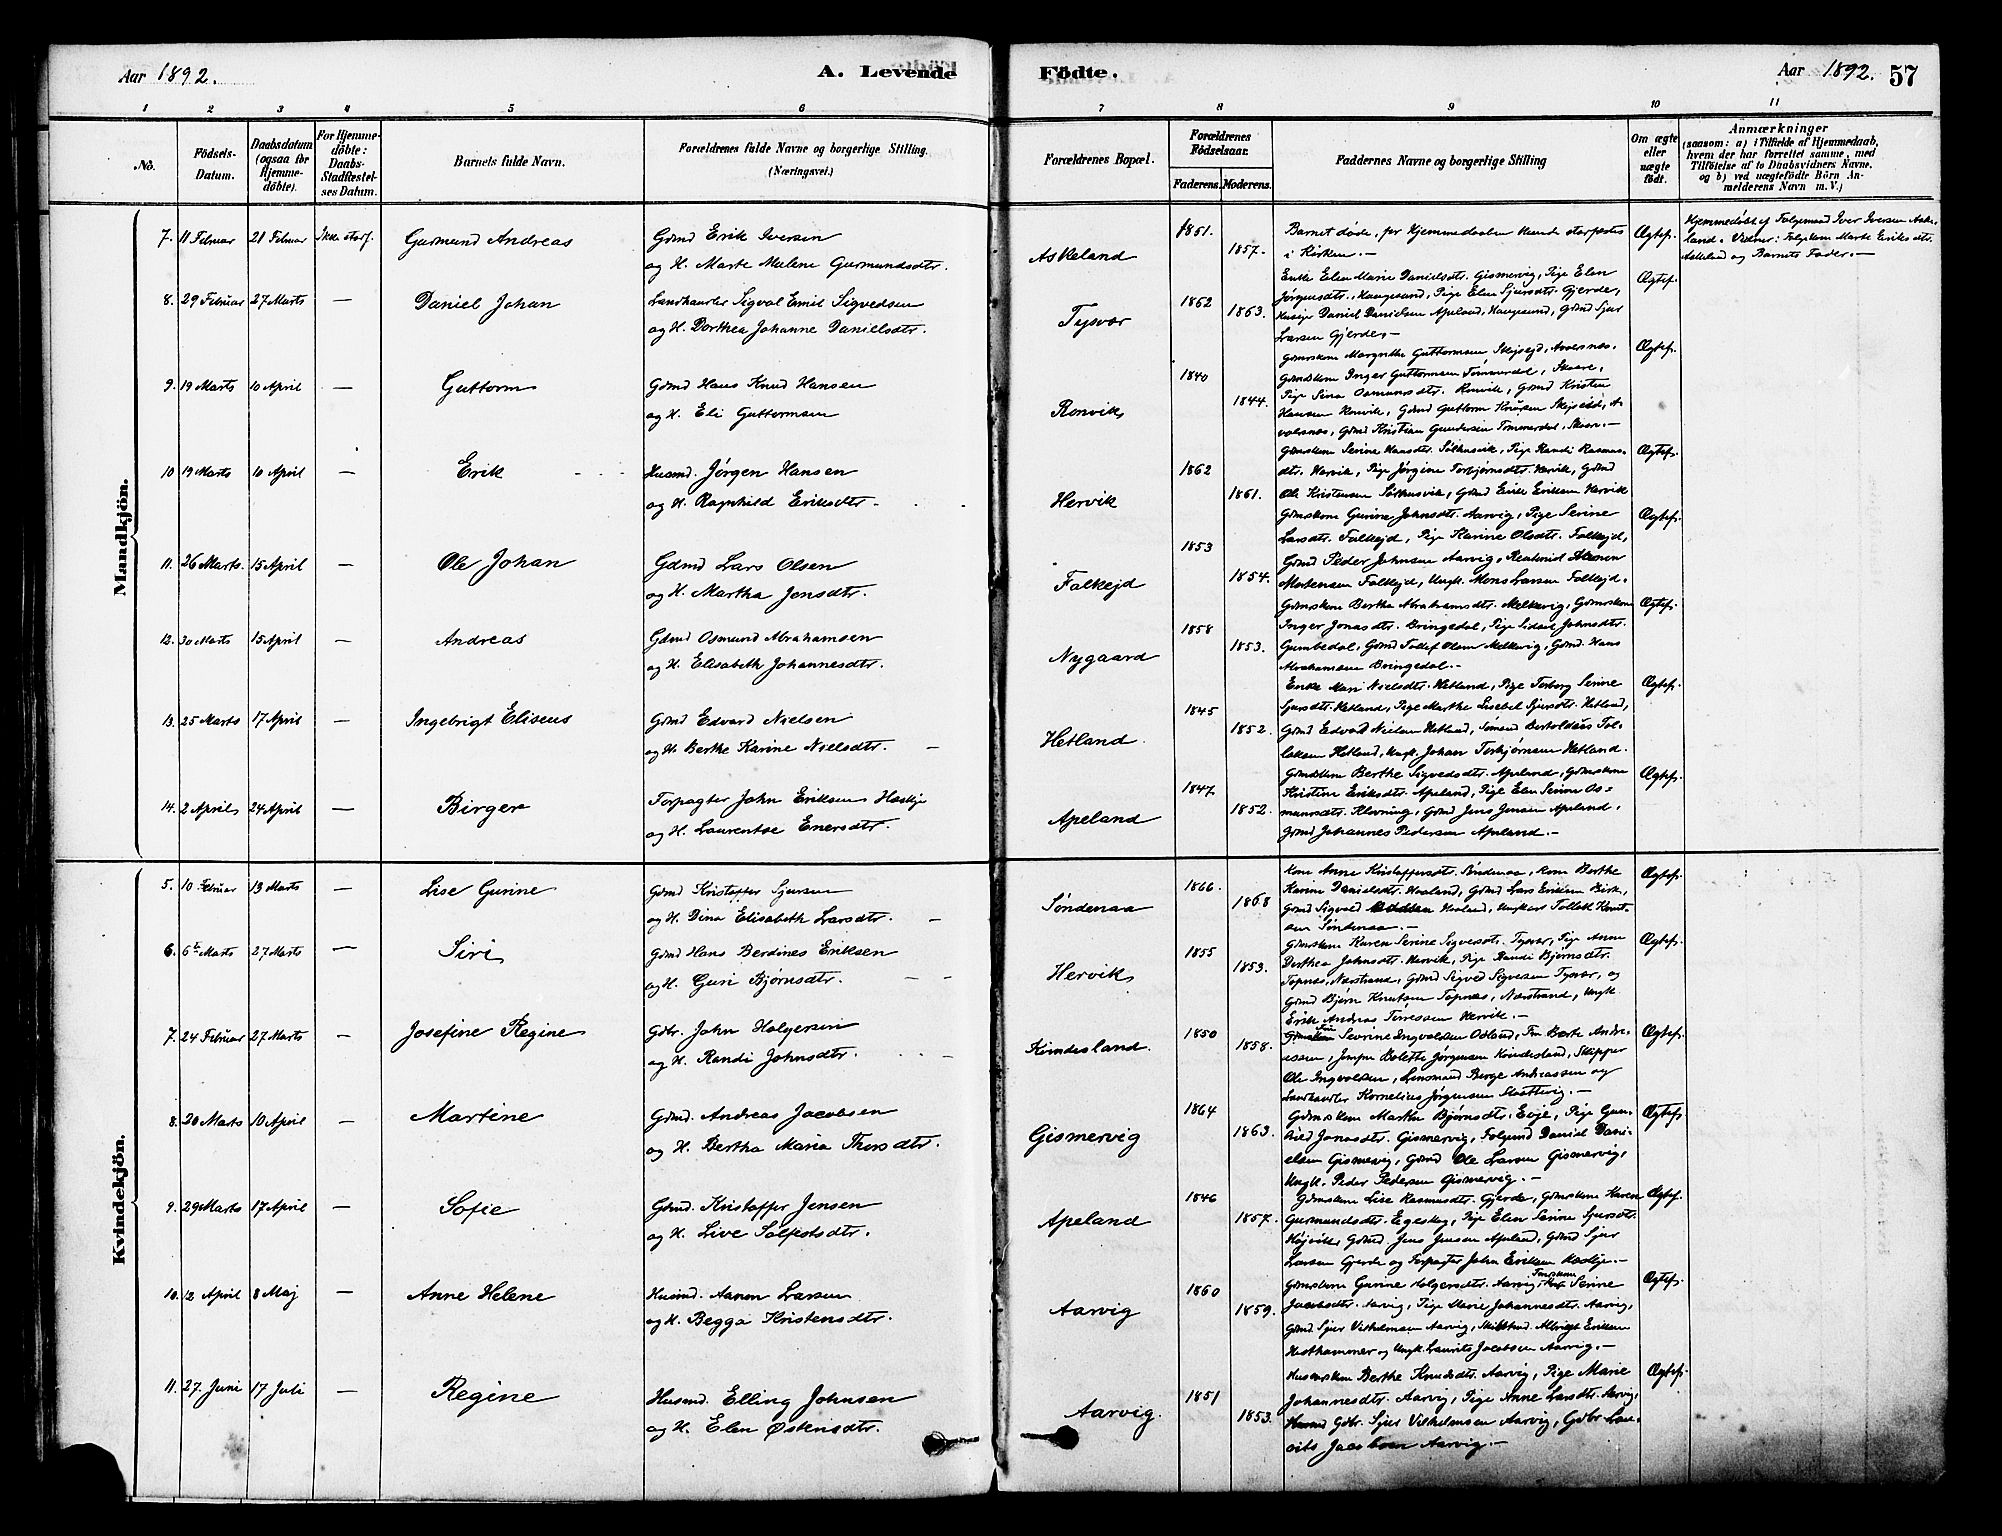 Aar 1892.
A. Levende
Födte.
Aar 1892.
57
1 2 3 4 5 6 7 8 9 10 11
No.
Födsels-Datum.
Daabsdatum (ogsaa for Hjemme-döbte).
For Hjemme-döbte: Daabs-Stadfæstel-ses Datum.
Barnets fulde Navn.
Forældrenes fulde Navne og borgerlige Stilling. (Næringsvei.)
Forældrenes Bopæl.
Forældrenes Födselsaar.
Faderens. Moderens.
Faddernes Navne og borgerlige Stilling
Om ægte eller uægte født.
Anmærkninger
(saasom: a) i Tilfælde af Hjemmedaab, hvem der har forrettet samme, med Tilföielse af to Daabsvidners Navne, og b) ved uægtefödte Börn An-melderens Navn m. V.)
Mandkjön.
7. 11 Februar 21 Februar Ikke starf. Gurmund Andreas Gdmd Erik Iversen
og H. Marte Malene Gurmundsdtr. Askeland 1851. 1857. Barnet døde, før Hjemmedaaben kunde stadfæstes
i Kirken.— Ægtef. Hjemmedøbt af Folgemand Iver Iversen Aske-
land. Vidner: Folgekone Marte Eriksdtr.
Askeland og Barnets Fader.—
8. 29 Februar 27 Marts — Daniel Johan Landhandler Sigval Emil Sigvedsen
og H. Dorthea Johanne Danielsdtr. Tysvær 1862 1863. Enke Elen Marie Danielsdt. Gismervig, Pige Elen
Jørgensdtr. Haugesund, Pige Elen Sjursdtr. Gjerde,
Daniel Danielsen Apeland, Haugesund, Gdmd Sjur
Larsen Gjerde.— Ægtef.
9. 19 Marts 10 April — Guttorm Gdmd Hans Knud Hansen
og H. Eli Guttormsen Ronvik 1840 1844. Gdmdskone Margrethe Guttormsen
Gdmdskone Inger Guttormsen Tømmerdal, Skaare,
Pige Sina Osmundsdtr. Ronvik, Gdmd Kristen
Hansen Ronvik, Gdmd Guttorm Knutsen
Gdmd Kristian Gundersen Tømmerdal, Skaare.— Ægtef.
10 19 Marts 10 April — Erik Husmd. Jørgen Hansen
og H. Ragnhild Eriksdtr. Hervik 1862 1861. Gdmskone Serine Hansdtr. Pige Randi Rasmus-
dtr. Hervik, Pige Jørgine Torbjørnsdtr. Hervik, Gdmd
Ole Kristensen Gdmd Erik Eriksen Hervik Ægtef.
11. 26 Marts. 15 April — Ole Johan Gdmd Lars Olsen
og H. Martha Jonsdtr. Falkejd 1853 1854. Gdmskone Gurine Johnsdtr. Aarvig, Pige Serine
Larsdtr. Falkejd, Pige Karine Olsdtr. Falkejd,
Gdmd Peder Johnsen Aarvig,
Mortensen Falkejd, Ungk. Mons Larsen Falkejd. Ægtef.
12. 30 Marts 15 April — Andreas Gdmd Osmund Abrahamsen
og H. Elisabeth Johannesdtr. Nygaard 1858 1853. Gdmskone Bertha Abrahamsdtr. Melkevig, Gdmskone
Inger Jonasdtr. Bringedal, Pige Johnsdtr.
Gdmd Tollef Olsen Melkevig, Gdmd. Hans
Abrahamsen Bringedal.— Ægtef.
13. 25 Marts 17 April — Ingebrigt Eliseus Gdmd Edvard Nielsen
og H. Berthe Karine Nielsdtr. Hetland 1845 1852. Enke Mari Nielsdtr. Hetland, Pige Torborg Serine
Sjursdtr. Hetland, Pige Marthe Lisebet Sjursdtr. Hetland,
Gdmd Edvard Nielsen Hetland, Bertoldius Tol-
laksen Hetland, Ungk. Johan Torbjørnsen Hetland. Ægtef.
14. 2 April 24 April — Birger Forpagter John Eriksen
og H. Laurentse Enersdtr. Apeland 1847 1852. Gdmdskone Berthe Sigvedsdtr. Apeland, Gdmskone
Kristine Eriksdtr. Apeland, Pige Elen Serine Os-
mundsdtr. Klovning, Gdmd Jens Jensen Apeland,
Gdmd Johannes Pedersen Apeland.— Ægtef.
Kvindekjön.
5. 10 Februar 13 Marts — Lise Gurine Gdmd Kristoffer Sjursen
og H. Dina Elisabeth Larsdtr. Søndenaa 1866. 1868 Kone Anne Kristoffersdtr. Søndenaa, Kone Berthe
Karine Danielsdtr. Haaland, Gdmd Lars Eriksen Birk,
Gdmd Sigvald Haaland, Ungkarl Tollak Knut-
sen Søndenaa.— Ægtef.
6. 6te Marts 27 Marts — Siri Gdmd Hans Berdines Eriksen
og H. Guri Bjørnsdtr. Hervik 1855 1853. Gdmskone Karen Serine Sigvesdtr. Tysvær, Pige Anne
Dorthea Johnsdtr. Hervik, Pige Randi Bjørnsdtr.
Topnæs, Nærstrand, Gdmd Sigved Sigvesen Tysvær, og
Gdmd Bjørn Knutsen Topnæs, Nærstrand, Ungk.
Erik Andreas Hervik.— Ægtef.
7. 24 Februar 27 Marts — Josefine Regine Gdbr. John Holgersen
og H. Randi Johnsdtr. Kindesland. 1850 1858. Fru Severine Ingvaldsen Odland, Fru Berte Andre-
assen, Jomfru Bolette Jørgensen Kindesland, Skipper
Ole Ingvaldsen, Lensmand Børge Andreassen og
Landhandler Kornelius Jørgensen Slottevig.— Ægtef.
8. 20 Marts 10 April — Martine Gdmd. Andreas Jacobsen
og H. Bertha Maria Thorsdtr. Gismervig 1864 1863. Gdmskone Martha Bjørnsdtr. Evje, Pige Gun-
hild Jonasdtr. Gismervig, Folgmd Daniel Dani-
elsen Gismervig, Gdmd Ole Larsen Gismervig,
Ungk. Peder Pedersen Gismervig.— Ægtef.
9. 29 Marts 17 April — Sofie Gdmd. Kristoffer Jensen
og H. Live Sølfestsdtr. Apeland 1846 1857. Gdmskone Lise Rasmusdtr. Gjerde, Gdmskone Karen
Gurmundsdtr. Egeskog, Pige Elen Serine Sjursdtr.
Højvik, Gdmd. Jens Jensen Apeland, Gdmd Sjur
Larsen Gjerde og Forpagter John Eriksen Ægtef.
10. 12 April 8 Maj — Anne Helene Husmd. Aanen Larsen
og H. Begga Kristensdtr. Aarvig 1860 1859. Gdmskone Gurine Holgersdtr. Aarvig, Serine
Jacobsdtr. Aarvig, Pige Marie Johannesdtr. Aarvig,
Gdmd Sjur Vilhelmsen Aarvig, Albrigt Eriksen
Hesthammer og Ungk. Laurits Jacobsen Aarvig.— Ægtef.
11. 27. Juni 17 Juli — Regine Husmd. Elling Johnsen
og H. Elen Østensdtr. Aarvig. 1851 1853. Husmskone Berthe Knudsdtr. Aarvig, Pige Marie
Johannesdtr. Aarvig, Pige Anne Larsdtr. Aarvig,
Gdbr. Sjur Vilhelmsen Aarvig, Gdbr Lau-
rits Jacobsen Aarvig.— Ægtef.